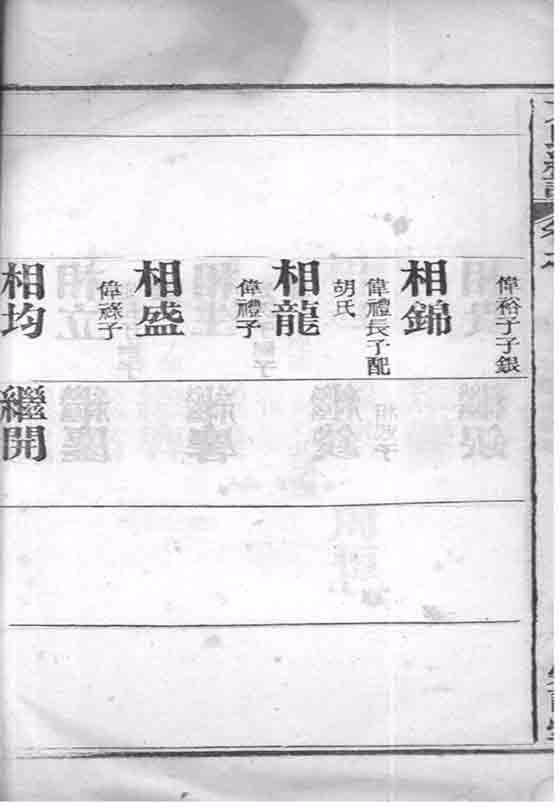 偉裕子子銀
相錦
偉禮長子配
胡氏
相龍
偉禮子
相盛
偉祿子
相均
繼開